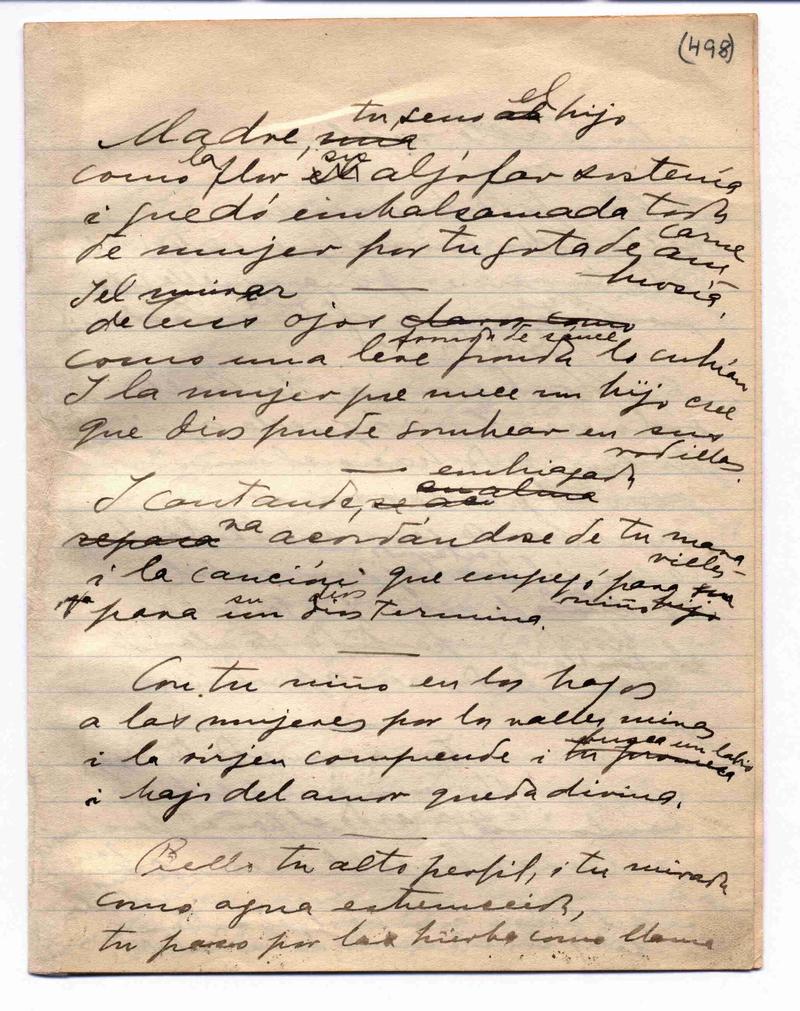 (498)
tu seno al el hijo
Madre, una
como la flor el sus aljófar sostenía
i quedó embalsamada toda
carne
de mujer por tu gota de am
brosía.
I el mirar
de tus ojos claros como
como una leve fronda lo cubrían
I la mujer que mece un hijo cree
que Dios puede sombrear en sus
rodillas.
embriagada
su alma
I cantando, se
va acordándose de tu mara
villa
i la canción que empezó para su
niño hijo
ya para su un dios dios termina.
Con tu niño en los
a las mujeres por los valles miras
i la virjen comprende i tu promesa
un labio
i bajo del amor queda divina.
Bello tu alto perfil, i tu mirada
como agua estremecida,
tu paso por las hierbas como llama